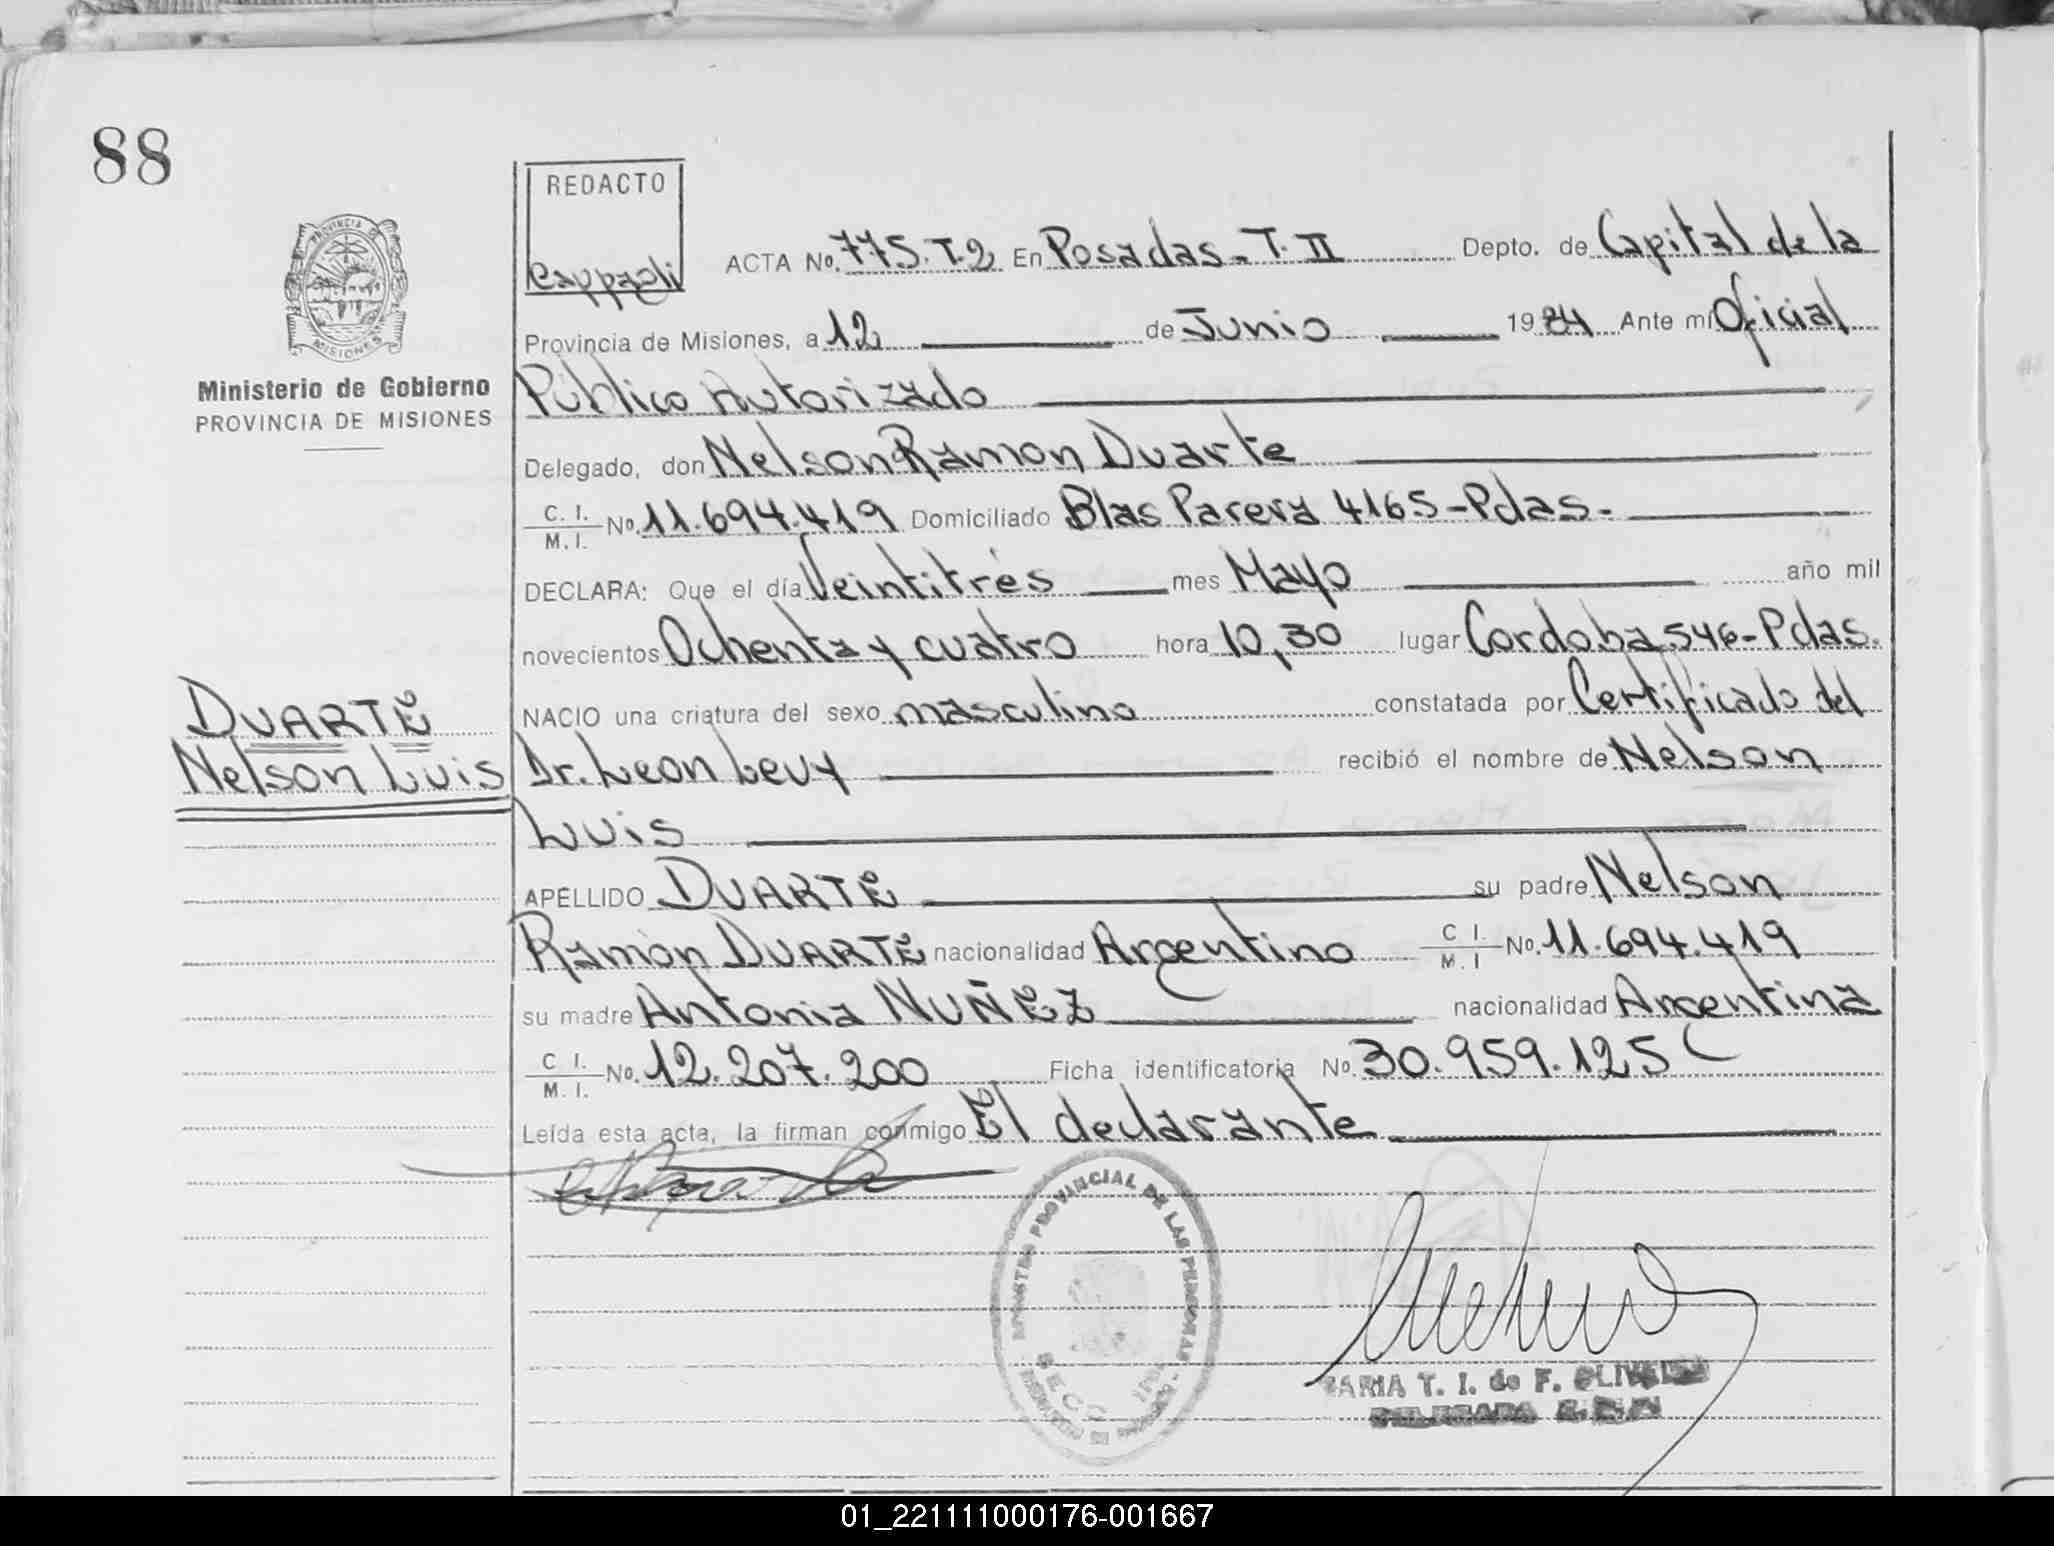 88
REDACTO
Cappaoli
PROVINCIA DE
MISIONES
Ministerio de Gobierno
PROVINCIA DE MISIONES
ACTA No. 775.T.2 En Posadas - T. II Depto. de Capital de la
Provincia de Misiones, a 12 de Junio 1984 Ante mi Oficial
Público Autorizado
Delegado, don Nelson Ramon Duarte
C. I. / M. I. No. 11.694.419 Domiciliado Blas Parera 4165-Pdas.
DECLARA: Que el día Veintitrés mes Mayo año mil
novecientos Ochenta y cuatro hora 10,30 lugar Cordoba 546-Pdas.
NACIO una criatura del sexo masculino constatada por Certificado del
Dr. Leon Levy recibió el nombre de Nelson
Luis
DUARTE
Nelson Luis
APELLIDO DUARTE su padre Nelson
Ramón DUARTE nacionalidad Argentino C I. / M. I No. 11.694.419
su madre Antonia NUÑEZ nacionalidad Argentina
C I. / M. I. No. 12.207.200 Ficha identificatoria No. 30.959.125
Leída esta acta, la firman conmigo El declarante
PROVINCIAL DE LAS PERSONAS
SECC
MARIA T. I. de F. OLIVEIRA
DELEGADA
01_221111000176-001667